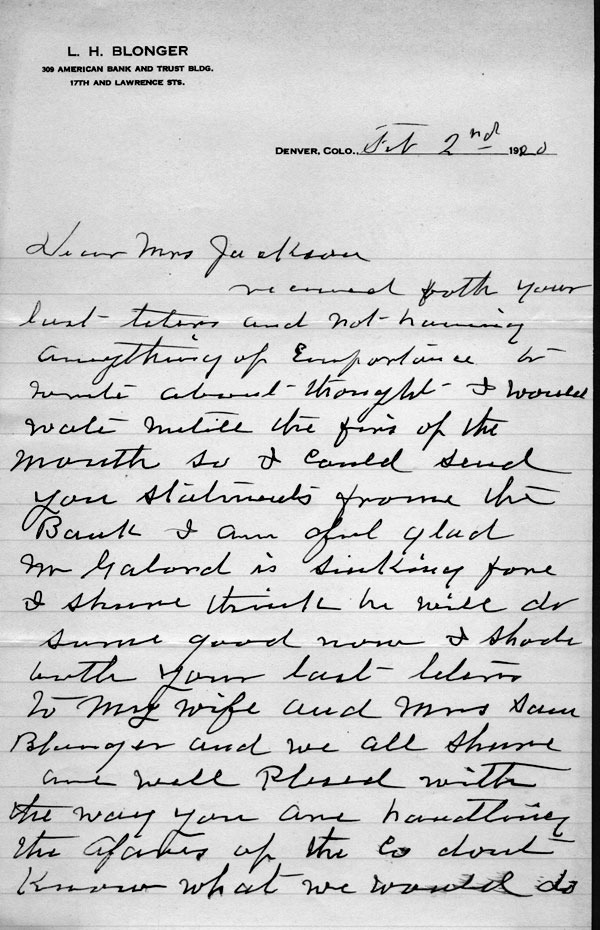 L. H. BLONGER
309 AMERICAN BANK AND TRUST BLDG.
17TH AND LAWRENCE STS.
DENVER, COLO., Feb 2nd 1920
Dear Mrs Jackson
received both your
last leters and not having
anything of Emportance to
write about thought I would
wate untill the firs of the
Month so I Could send
you statments frome the
Bank I am oful glad
Mr Galord is sinking fore
I shure think he will do
some good now I shode
both your last leters
to My wife and Mrs Sam
Blonger and we all shure
are well Plesed with
the way you are handling
the afares of the Co dont
Know what we would do